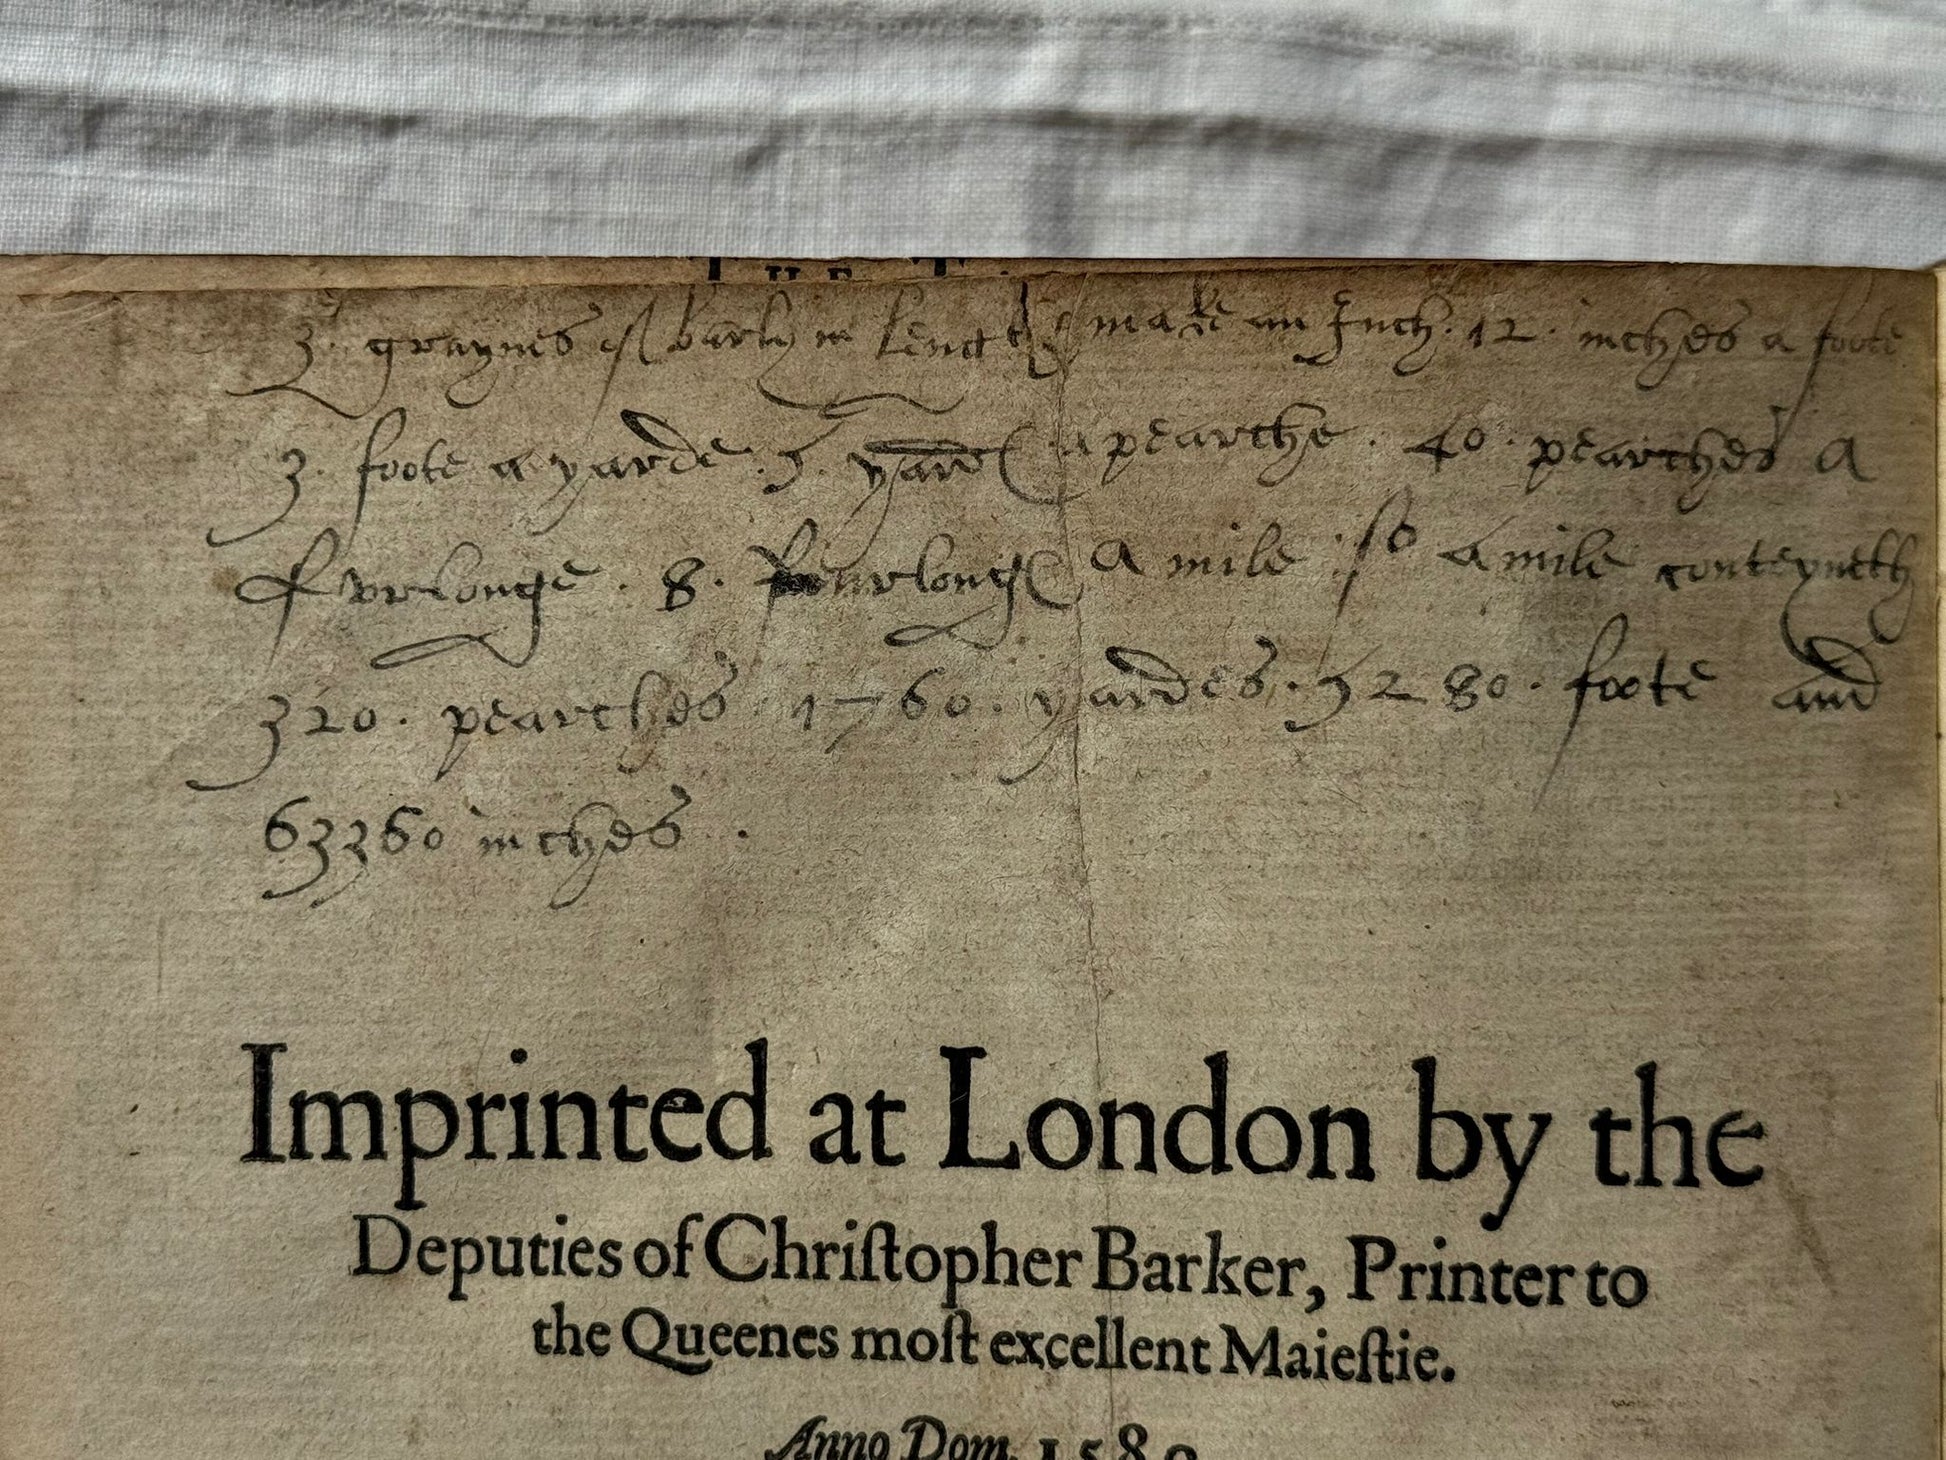 THE T
3. graynes of barly in lengthe make an Inch. 12. inches a foote
3. foote a yarde. 5. yardes a pearche. 40. pearches a
ffvrlonge. 8. ffeurlonges A mile. so a mile conteyneth
320. pearches 1760. yardes. 5280. foote and
63360 inches.
Imprinted at London by the
Deputies of Chriſtopher Barker, Printer to
the Queenes moſt excellent Maieſtie.
Anno Dom. 1589